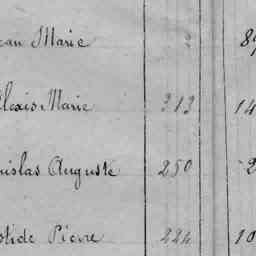 ean Marie 2 89
Alexis Marie 313 14
nislas Auguste 250 2
stide Pierre 224 10